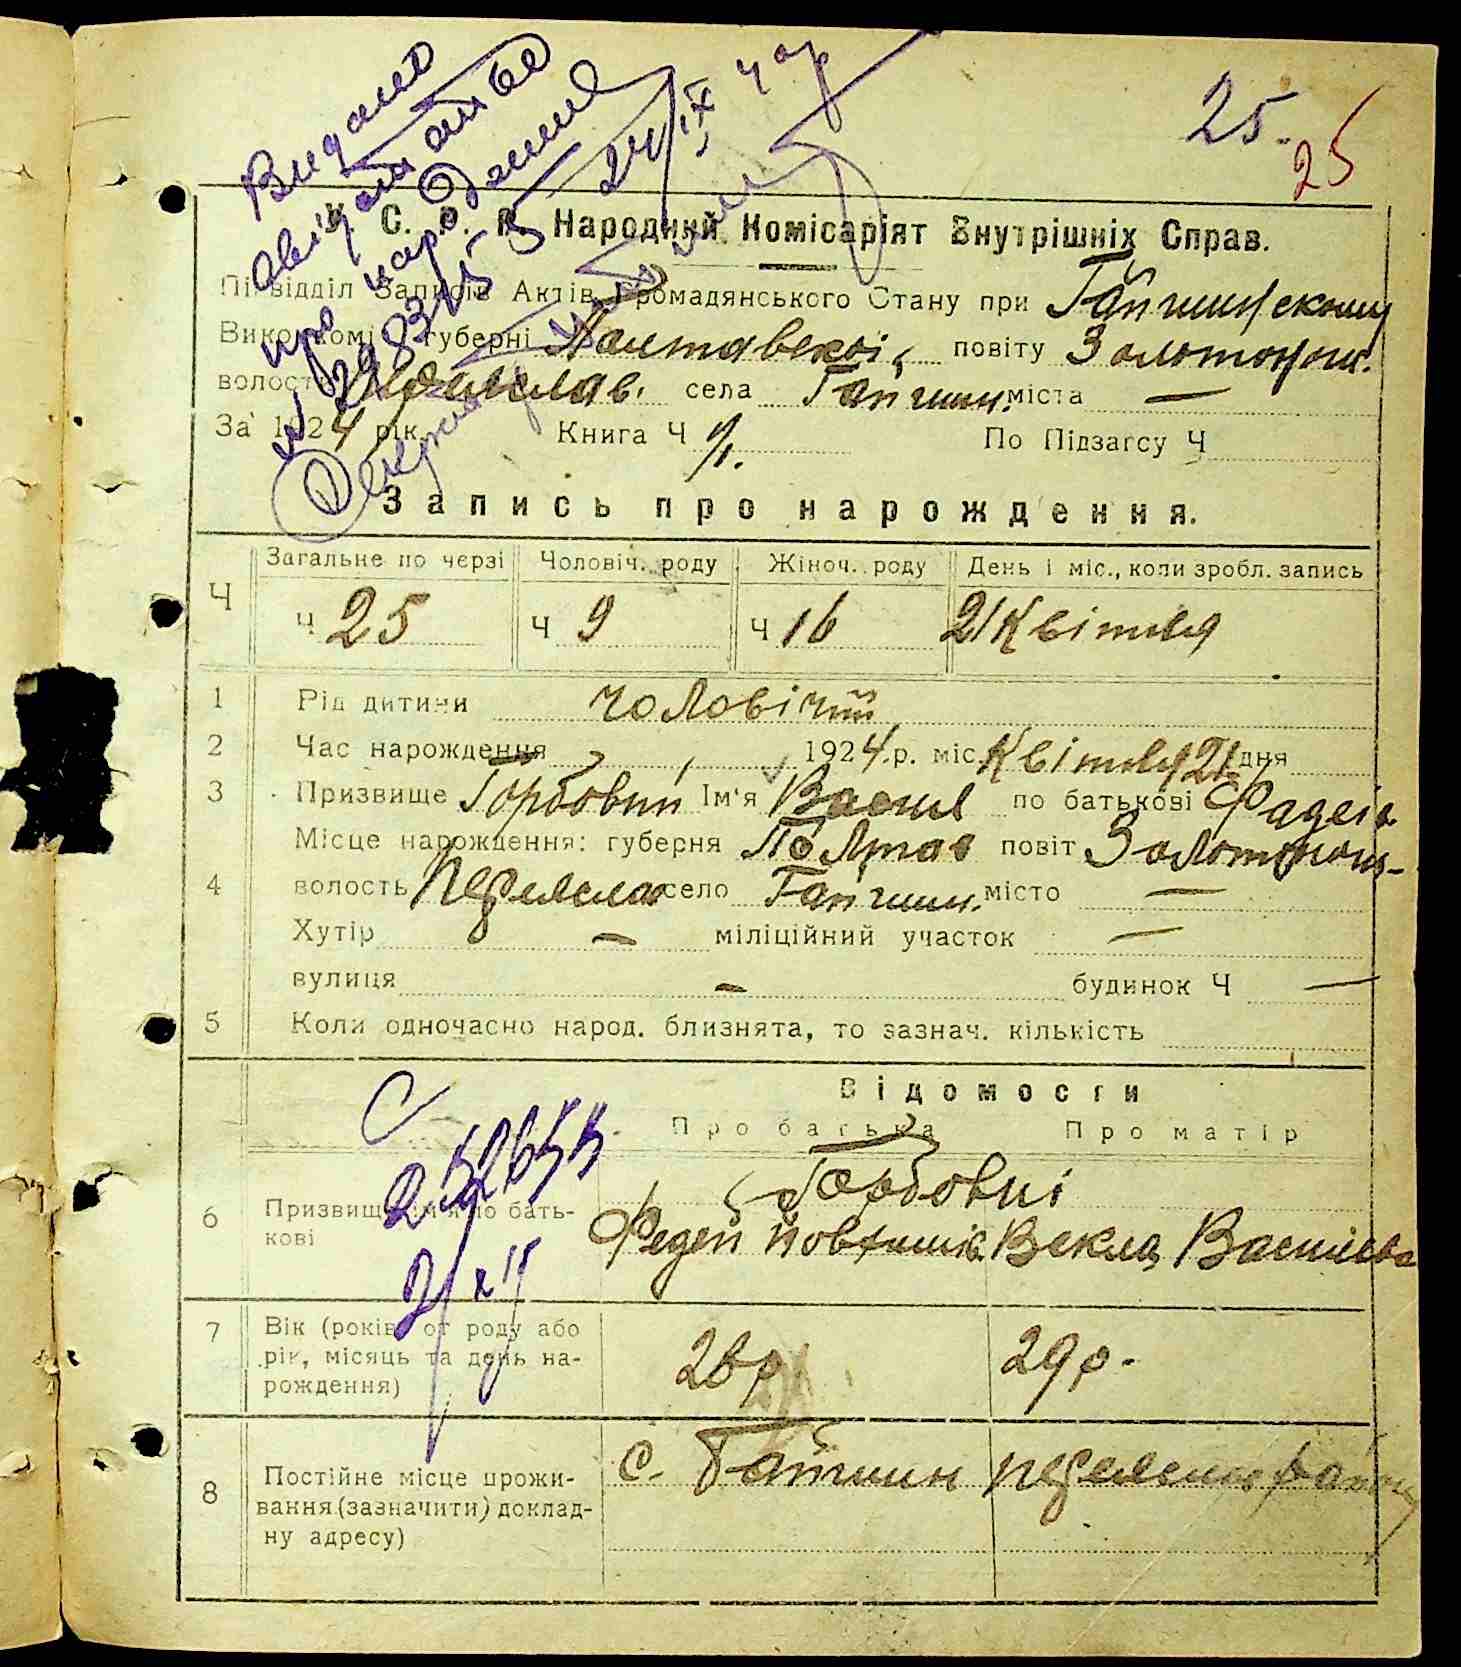 Видано
про народження
25.
25
У. С. Р. Р. Народний Комісаріят Внутрішніх Справ.
Підвідділ Записів Актів Громадянського Стану при Гайшинському
Виконкомі губерні Полтавської, повіту Золотонош.
волости Переяслав. села Гайшин. міста —
За 1924 рік. Книга Ч 1. По Підзагсу Ч
Запись про народження.
Ч Загальне по черзі Чоловіч. роду Жіноч. роду День і міс., коли зробл. запись
Ч 25 Ч 9 Ч 16 21 Квітня
1 Рід дитини чоловічий
2 Час нарождення 1924 р. міс Квітня 21 дня
3 Призвище Горбовий Ім'я Василь по батькові Фадеів
Місце нарождення: губерня Полтав повіт Золотонош-
4 волость Переяслав село Гайшин. місто —
Хутір — міліційний участок —
вулиця — будинок Ч —
5 Коли одночасно народ. близнята, то зазнач. кількість
Відомости
Про батька Про матір
6 Призвище, ім'я по бать- Горбовні
кові Федей Векла Василева
7 Вік (років от роду або 26 р. 29 р.
рік, місяць та день на-
рождення)
8 Постійне місце прожи- с. Гайшин Переяслав району
вання (зазначити) доклад-
ну адресу)